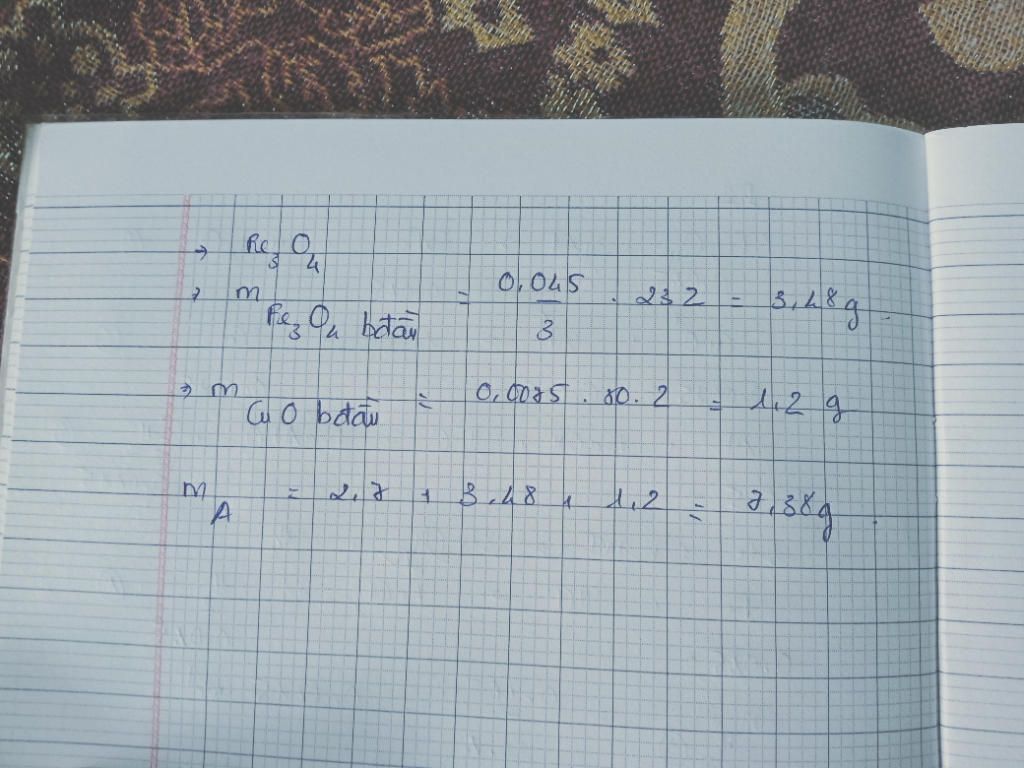 → Fe₃O₄
→ m Fe₃O₄ bđầu = 0,045/3 . 232 = 3,48g.
→ m CuO bđầu = 0,0075 . 80 . 2 = 1,2 g
m A = 2,7 + 3,48 + 1,2 = 7,38g.